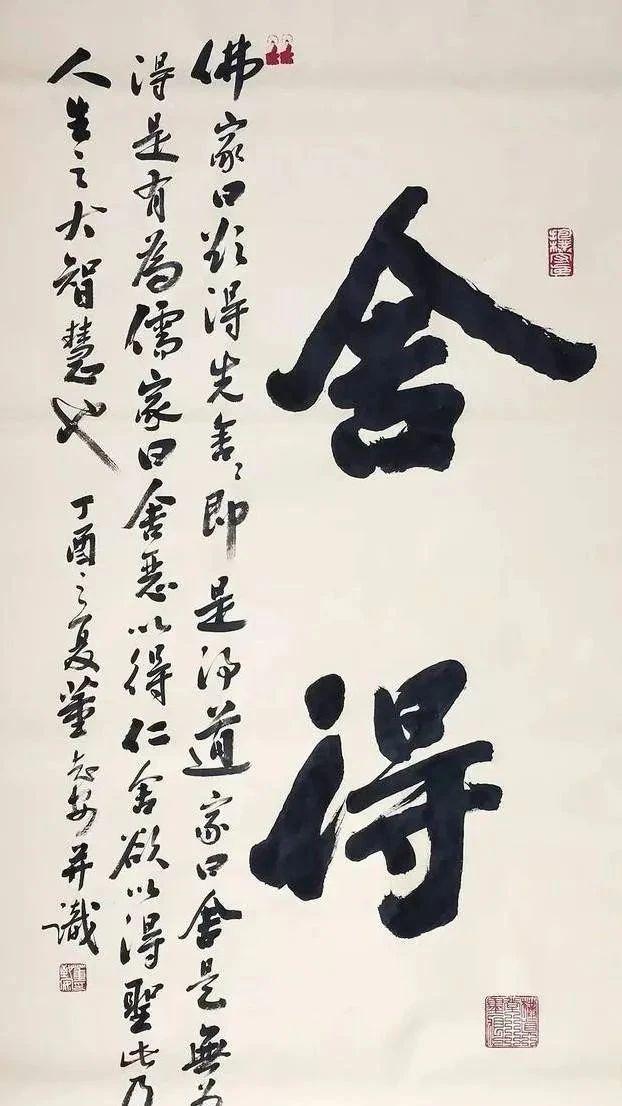 舍得
佛家曰欲得先舍〻即是得道家曰舍是無為
得是有為儒家曰舍惡以得仁舍欲以得聖此乃
人生之大智慧也 丁酉之夏董并識